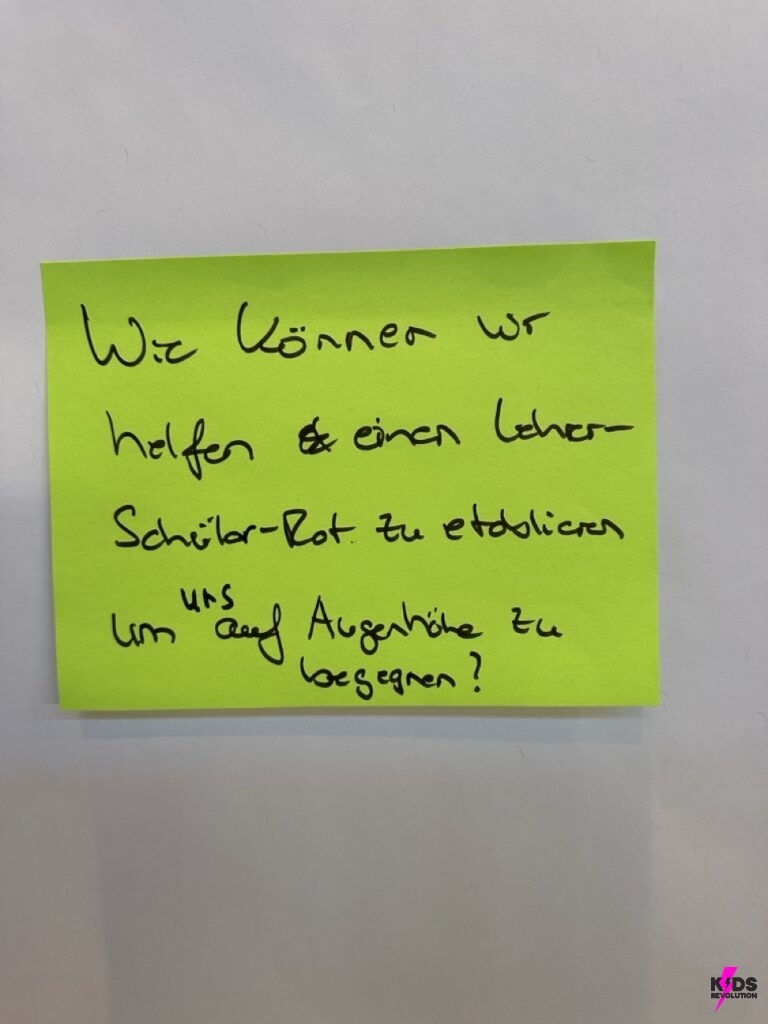 Wie können wir
helfen einen Lehrer-
Schüler-Rat zu etablieren
um uns auf Augenhöhe zu
begegnen?
KIDS
REVOLUTION